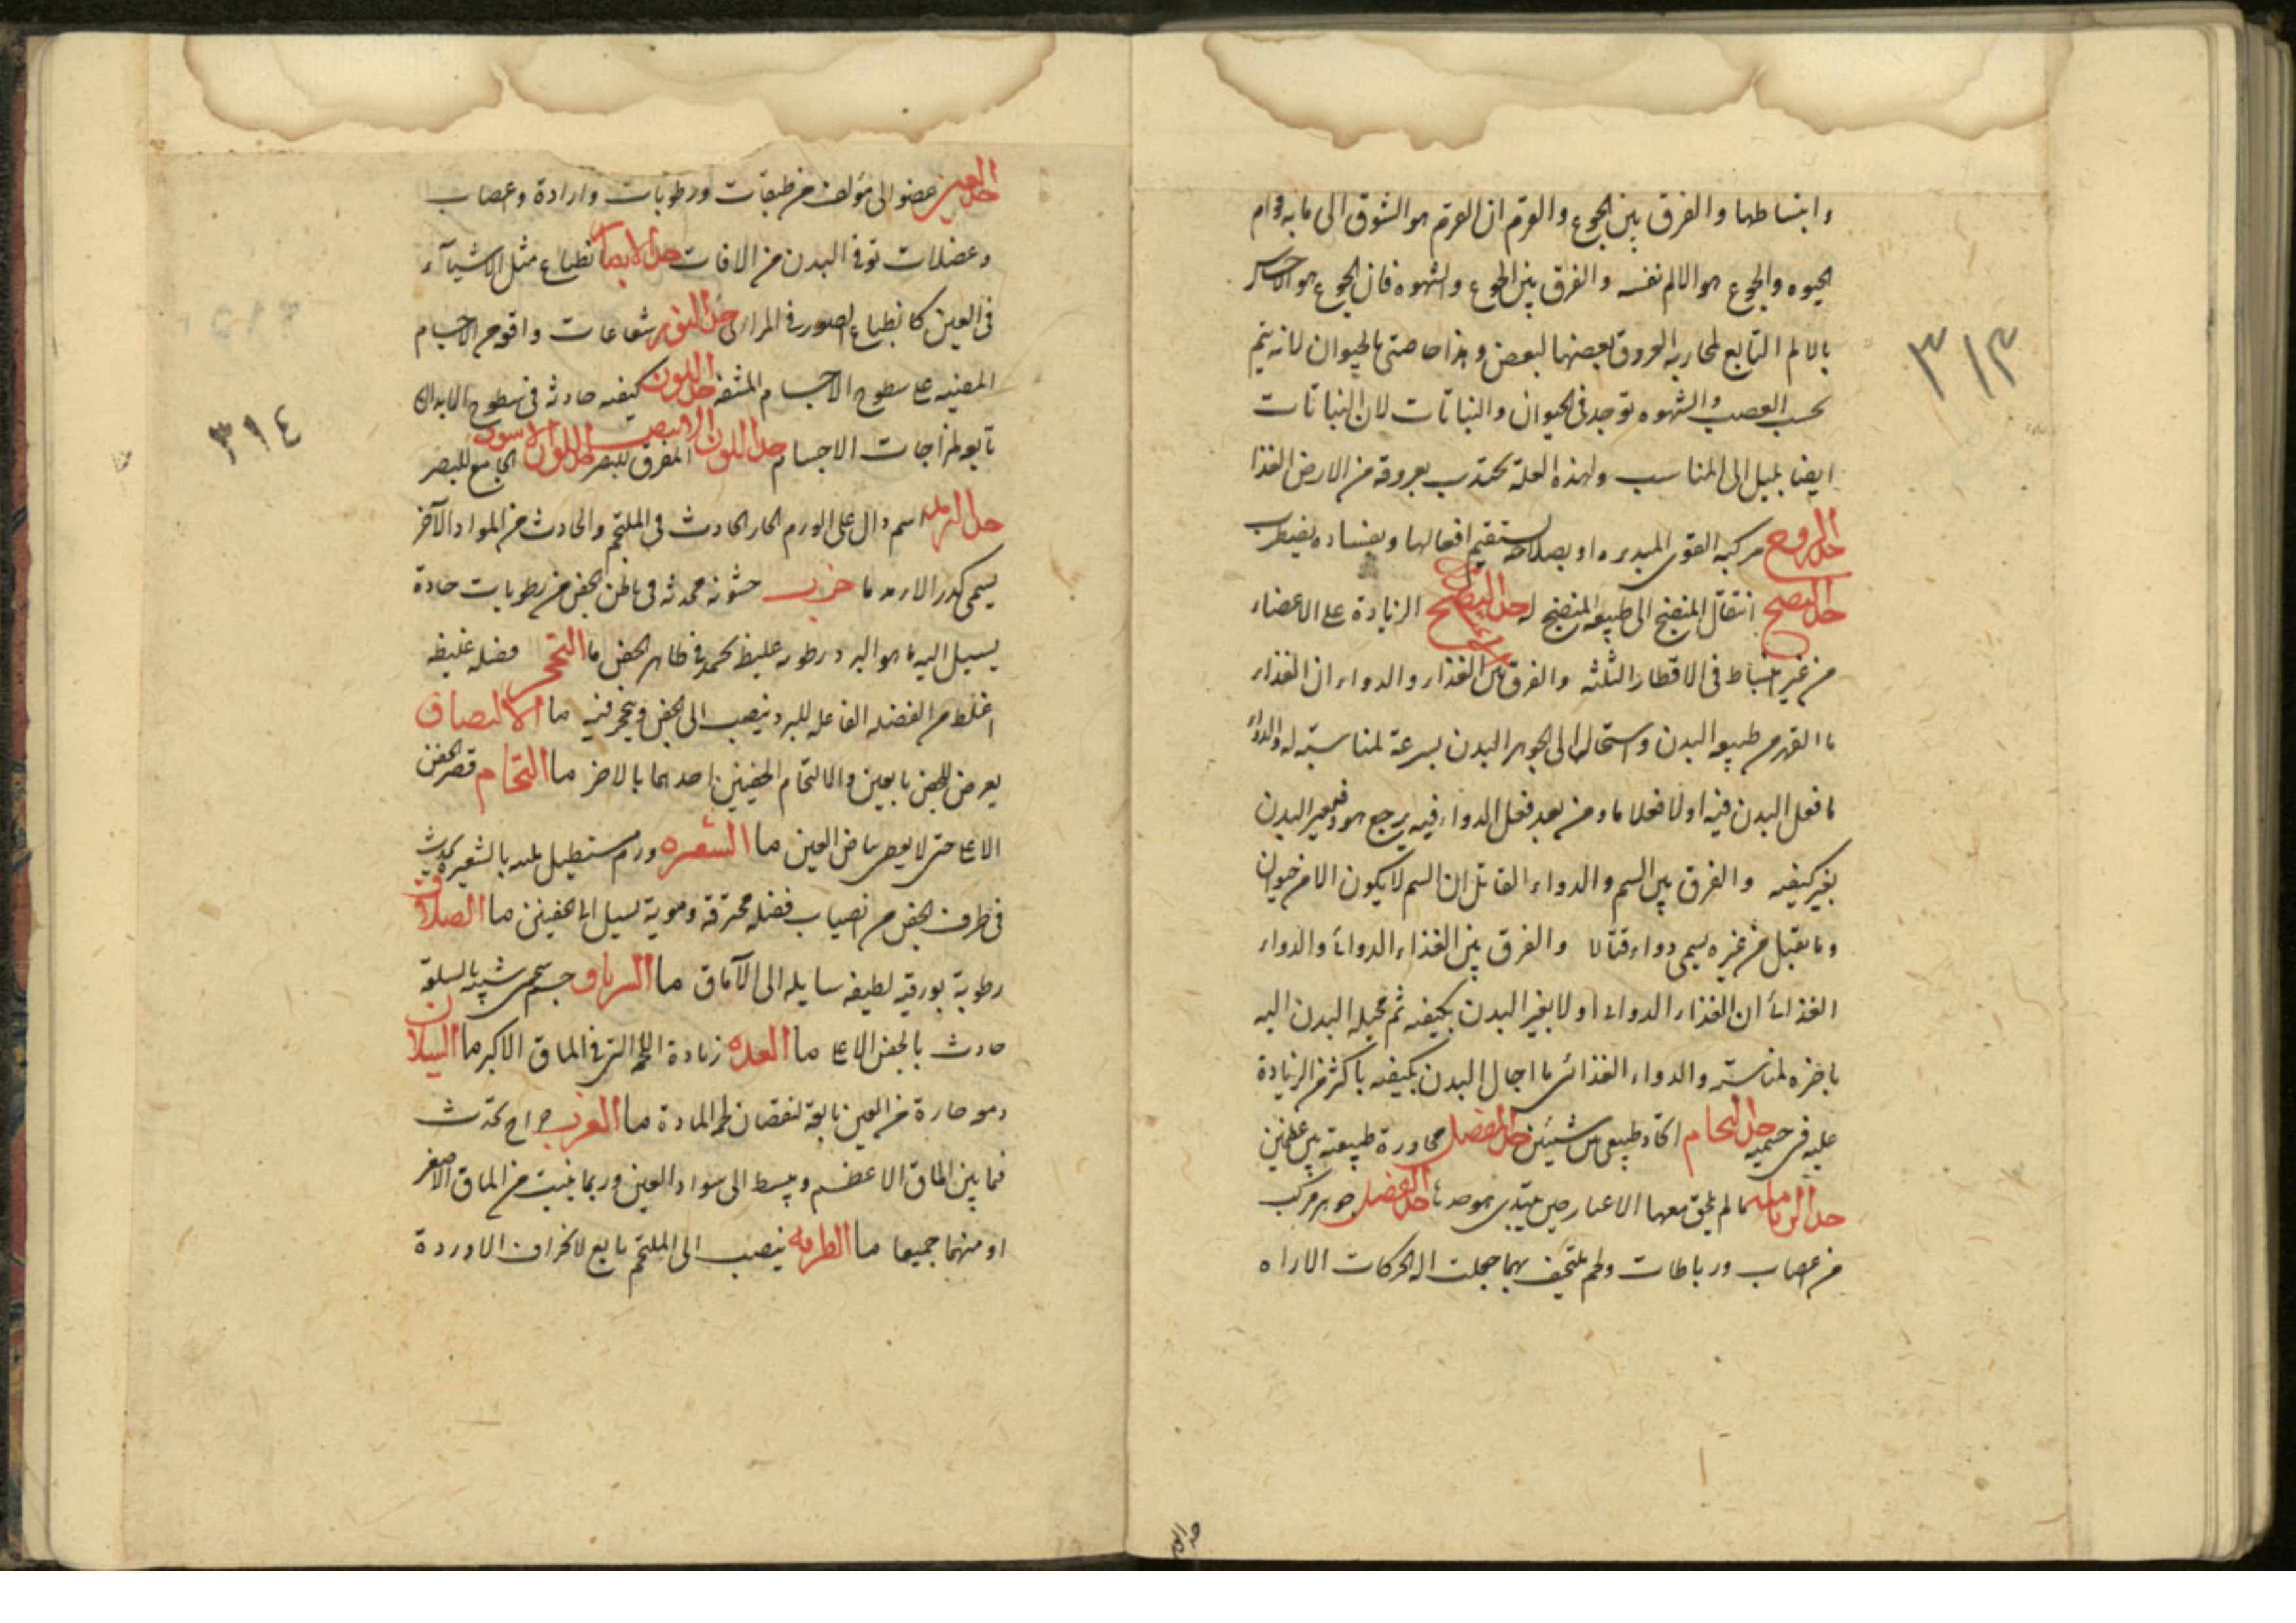 وانبساطها والفرق بين الجوع والقرم ان القرم هو الشوق الى ما به قوام
الحيوه والجوع هو الالم نفسه والفرق بين الجوع والشهوه فان الجوع هو الاحساس
بالالم التابع لمحاربه العروق بعضها لبعض وهذا خاصتى بالحيوان لانه يتم
بحسب العصب والشهوه توجد فى الحيوان والنباتات لان النباتات
ايضا يميل الى المناسب ولهذه العلة تجتذب بعروقه من الارض الغذا
حد الروح مركبه القوى المدبره او بصلاحه تستقيم افعالها وبفساده يضطرب
حد النضج انتقال المنضج الى طبيعه المنضج له حد النضج الزيادة على الاعضاء
من غير انبساط فى الاقطار الثلثه والفرق بين الغذاء والدواء ان الغذاء
ما انقهر من طبيعه البدن واستحال الى جوهر البدن بسرعة لمناسبته له والدواء
ما فعل البدن فيه اولا فعلا ما ومن بعد فعل الدواء فيه يرجع هو فيغير البدن
بغير كيفيه والفرق بين السم والدواء القاتل ان السم لا يكون الا من حيوان
وما يقتل من غيره يسمى دواء قتالا والفرق بين الغذاء الدوائى والدواء
الغذائى ان الغذاء الدوائى اولا يغير البدن بكيفيه ثم يحيله البدن اليه
باخره لمناسبته والدواء الغذائى ما احال البدن بكيفيه باكثر من الزيادة
عليه فى جسميه حد التحام اتحاد طبيعى بين شيئين حد المفصل مجاورة طبيعته بين عظمين
حد الزمانه ما لم يلحق معها الاعمار حين يبتدى حد العضل جوهر مركب
من اعصاب ورباطات ولحم يلتحف بهما جعلت اله الحركات الاراه
٣١٣
حد العين عضو الى مؤلف من طبقات ورطوبات وارادة واعصاب
وعضلات توقى البدن من الافات حد الابصار انطباع مثل الاشيآء
فى العين كانطباع الصور فى المرائى حد النور شعاعات واقوه من الاجسام
المضيه على سطوح الاجسام المشفه حد اللون كيفيه حادثه فى سطوح الابدان
تابعه لمزاجات الاجسام حد اللون الابيض المفرق للبصر حد اللون الاسود الجامع للبصر
حد الرمد اسم دال على الورم الحار الحادث فى الملتحم والحادث من المواد الآخر
يسمى تكدر الا رمد ما جرب خشونه محدثه فى باطن الجفن من رطوبات حادة
يسيل اليه ما هو البرد رطوبه غليظ تجمد فى ظاهر الجفن ما التحجر فضله غليظه
اغلظ من الفضله الفاعله للبرد ينصب الى الجفن ويتحجر فيه ما الالتصاق
يعرض للجفن بالعين والالتحام الجفنين احدهما بالاخر ما التحام قصر الجفن
الاعلى حتى لا يغطى بياض العين ما الشعيره ورم مستطيل شبيه بالشعيره يحدث
فى طرف الجفن من انصباب فضله محترقة دموية تسيل الى الجفنين ما الصلاق
رطوبة بورقيه لطيفه سايله الى الآماق ما الشرناق جسم شحمى شبيه بالسلعة
حادث بالجفن الاعلى ما الغده زيادة اللحمه التى فى الماق الاكبر ما السيلان
دموع حارة من العين تابعة لنقصان لحم المادة ما الغرب خراج يحدث
فما بين الماق الاعظم ويبسط الى سواد العين وربما ينبت من الماق الاصغر
او منهما جميعا ما الطرفه ينصب الى الملتحم تابع لانخراق الاوردة
٣١٤